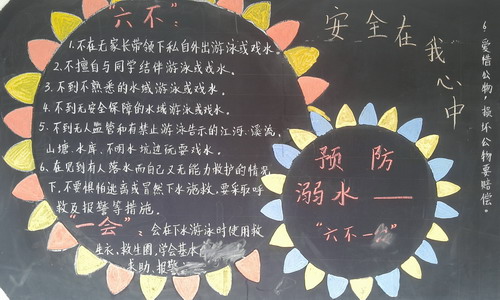 "六不":
1.不在无家长带领下私自外出游泳或戏水。
2.不擅自与同学结伴游泳或戏水。
3.不到不熟悉的水域游泳或戏水。
4.不到无安全保障的水域游泳或戏水。
5.不到无人监管和有禁止游泳告示的江河、溪流、
山塘、水库、不明水坑边玩耍戏水。
6.在见到有人落水而自己又无能力救护的情况
下,不要惧怕逃离或冒然下水施救,要采取呼
救及报警等措施。
"一会": 会在下水游泳时使用救
生衣、救生圈,学会基本
求助、报警
安全在我心中
预防
溺水——
"六不一
6.爱惜公物,损坏公物要赔偿。